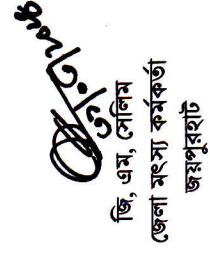 জি, এম, সেলিম
জেলা মৎস্য কর্মকর্তা
জয়পুরহাট